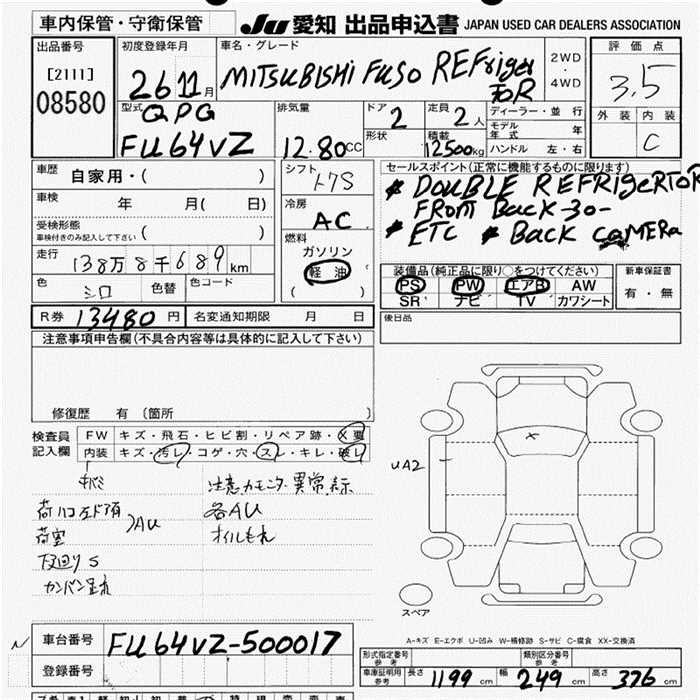 車内保管・守衛保管 JU 愛知 出品申込書 JAPAN USED CAR DEALERS ASSOCIATION
出品番号
[2111]
08580
初度登録年月
26 11月
車名・グレード
MITSUBISHI FUSO REFriger
ToR
2WD
・
4WD
評価点
3,5
外装 内装
C
型式
QPG
FU64VZ
排気量
12.80cc
ドア
2
形状
定員
2人
積載
12500kg
ディーラー・並行
モデル年式 年
ハンドル 左・右
車歴 自家用・( )
車検 年 月( 日)
受検形態
車検付きのみ記入して下さい ( )
走行 138万8千689km
色 シロ 色替 色コード
シフト
冷房
AC
燃料
ガソリン
軽油
( )
セールスポイント(正常に機能するものに限ります)
* DOUBLE REFRIgeRTOR
FRONT Back -30-
* ETC * Back CaMERa
装備品(純正品に限り○をつけてください)
PS PW エアB AW
SR ナビ TV カワシート
新車保証書
有・無
R券 13480円 名変通知期限 月 日
後日品
注意事項申告欄(不具合内容等は具体的に記入して下さい)
修復歴 有(箇所 )
検査員記入欄
FW キズ・飛石・ヒビ割・リペア跡・X要
内装 キズ・汚レ・コゲ・穴・スレ・キレ・破レ
各AU
オイルもれ
荷室
)AU
下回りS
UA2
X
スペア
A-キズ E-エクボ U-凹み W-補修跡 S-サビ C-腐食 XX-交換済
車台番号 FU64VZ-500017
登録番号
型式指定番号 参考
類別区分番号 参考
車庫証明用 参考 長さ 1199cm 幅 249cm 高さ 376cm